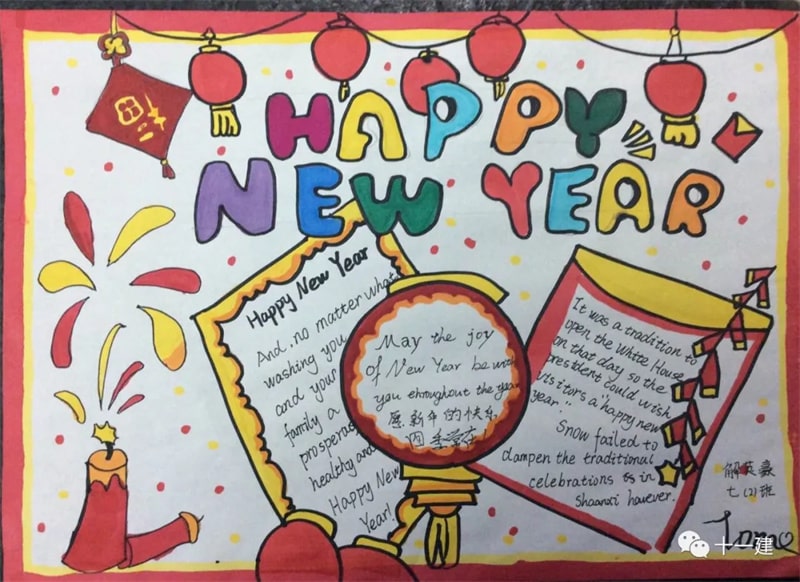 HAPPY
NEW YEAR
Happy New Year
And, no matter what
washing you
and your
family a
prosperous
healthy and
Happy New
Year!
May the joy
of New Year be with
you ehroughout the year
愿新年的快乐
四季常在
It was a tradition to
open the White House
on that day so the
president could wish
visitors a "happy new
year."
Snow failed to
dampen the traditional
celebrations is in
Shaanxi however.
七(2)班
十一建